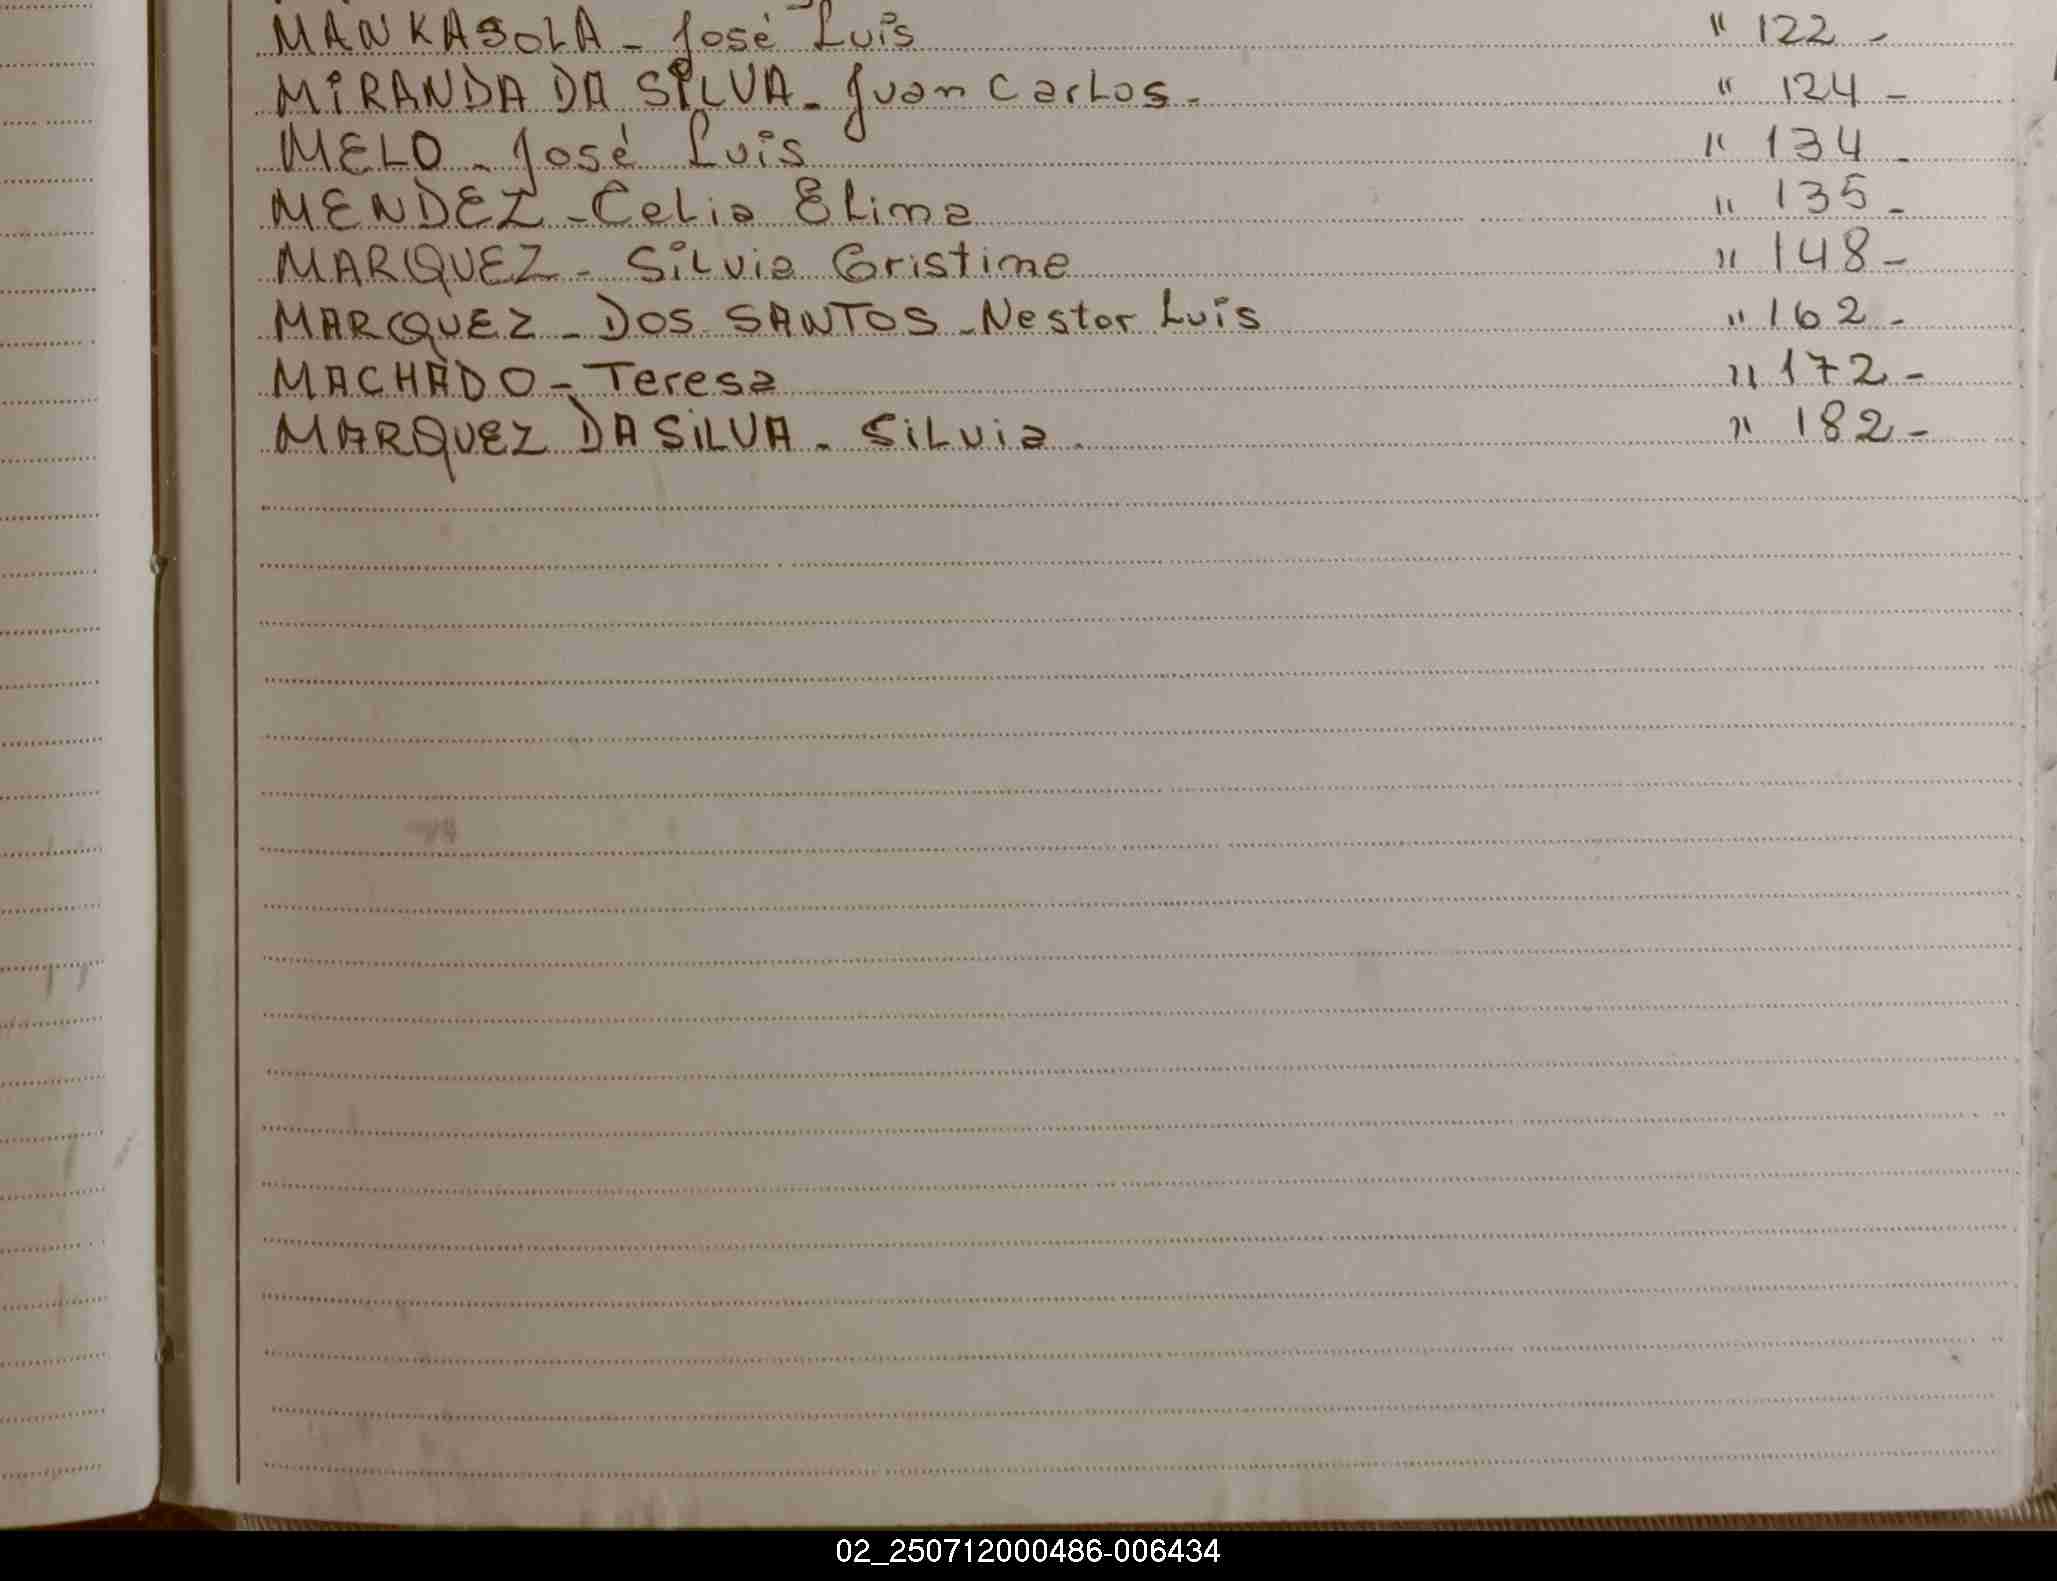 MANKASOLA - José Luis " 122 -
MiRANDA DA SiLVA - Juan Carlos - " 124 -
MELO - José Luis " 134 -
MENDEZ - Celia Elima " 135 -
MARQUEZ - Silvia Cristine " 148 -
MARQUEZ - DOS SANTOS - Nestor Luis " 162 -
MACHADO - Teresa " 172 -
MARQUEZ DA SiLVA - SiLvia - " 182 -
02_250712000486-006434